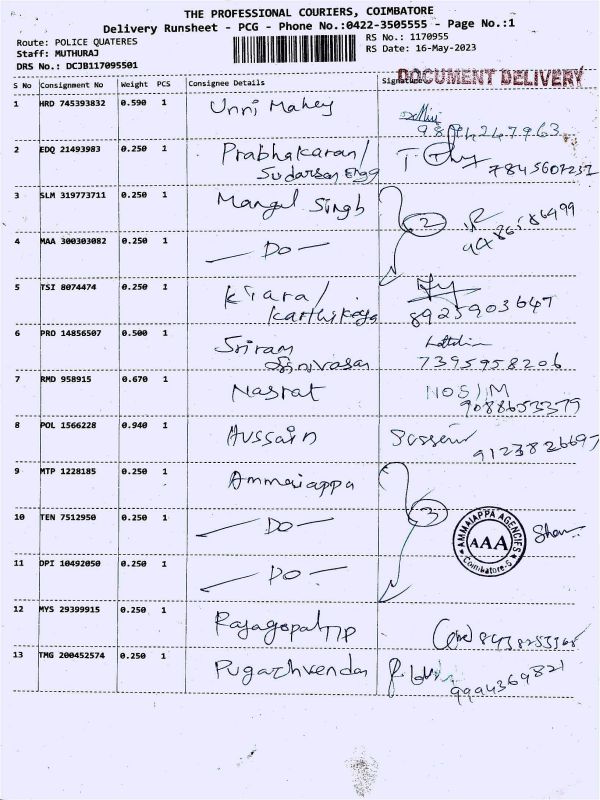 THE PROFESSIONAL COURIERS, COIMBATORE
Delivery Runsheet - PCG - Phone No.:0422-3505555 - Page No.:1
Route: POLICE QUATERES
Staff: MUTHURAJ
DRS No.: DCJB117095501
RS No.: 1170955
RS Date: 16-May-2023
DOCUMENT DELIVERY
S No Consignment No Weight PCS Consignee Details Signature
1 HRD 745393832 0.590 1 Unni Mahey
2 EDQ 21493983 0.250 1 Prabhakaran/
Sudarsan Engg
7845607237
3 SLM 319773711 0.250 1 Mangal Singh
2
4 MAA 300303082 0.250 1 — Do —
5 TSI 8074474 0.250 1 Kiara/
Karthikeya 8925903647
6 PRO 14856507 0.500 1 Sriram
Srinivasan 7395958206
7 RMD 958915 0.670 1 Nasrat
9088653379
8 POL 1566228 0.940 1 Hussain
9123826697
9 MTP 1228185 0.250 1 Ammaiappa
10 TEN 7512950 0.250 1 — Do — 3
AMMAIAPPA AGENCIES
AAA
Coimbatore-6
11 DPI 10492050 0.250 1 — Do —
12 MYS 29399915 0.250 1 Rajagopal TP
13 TMG 200452574 0.250 1 Pugazhvendan
9994369821